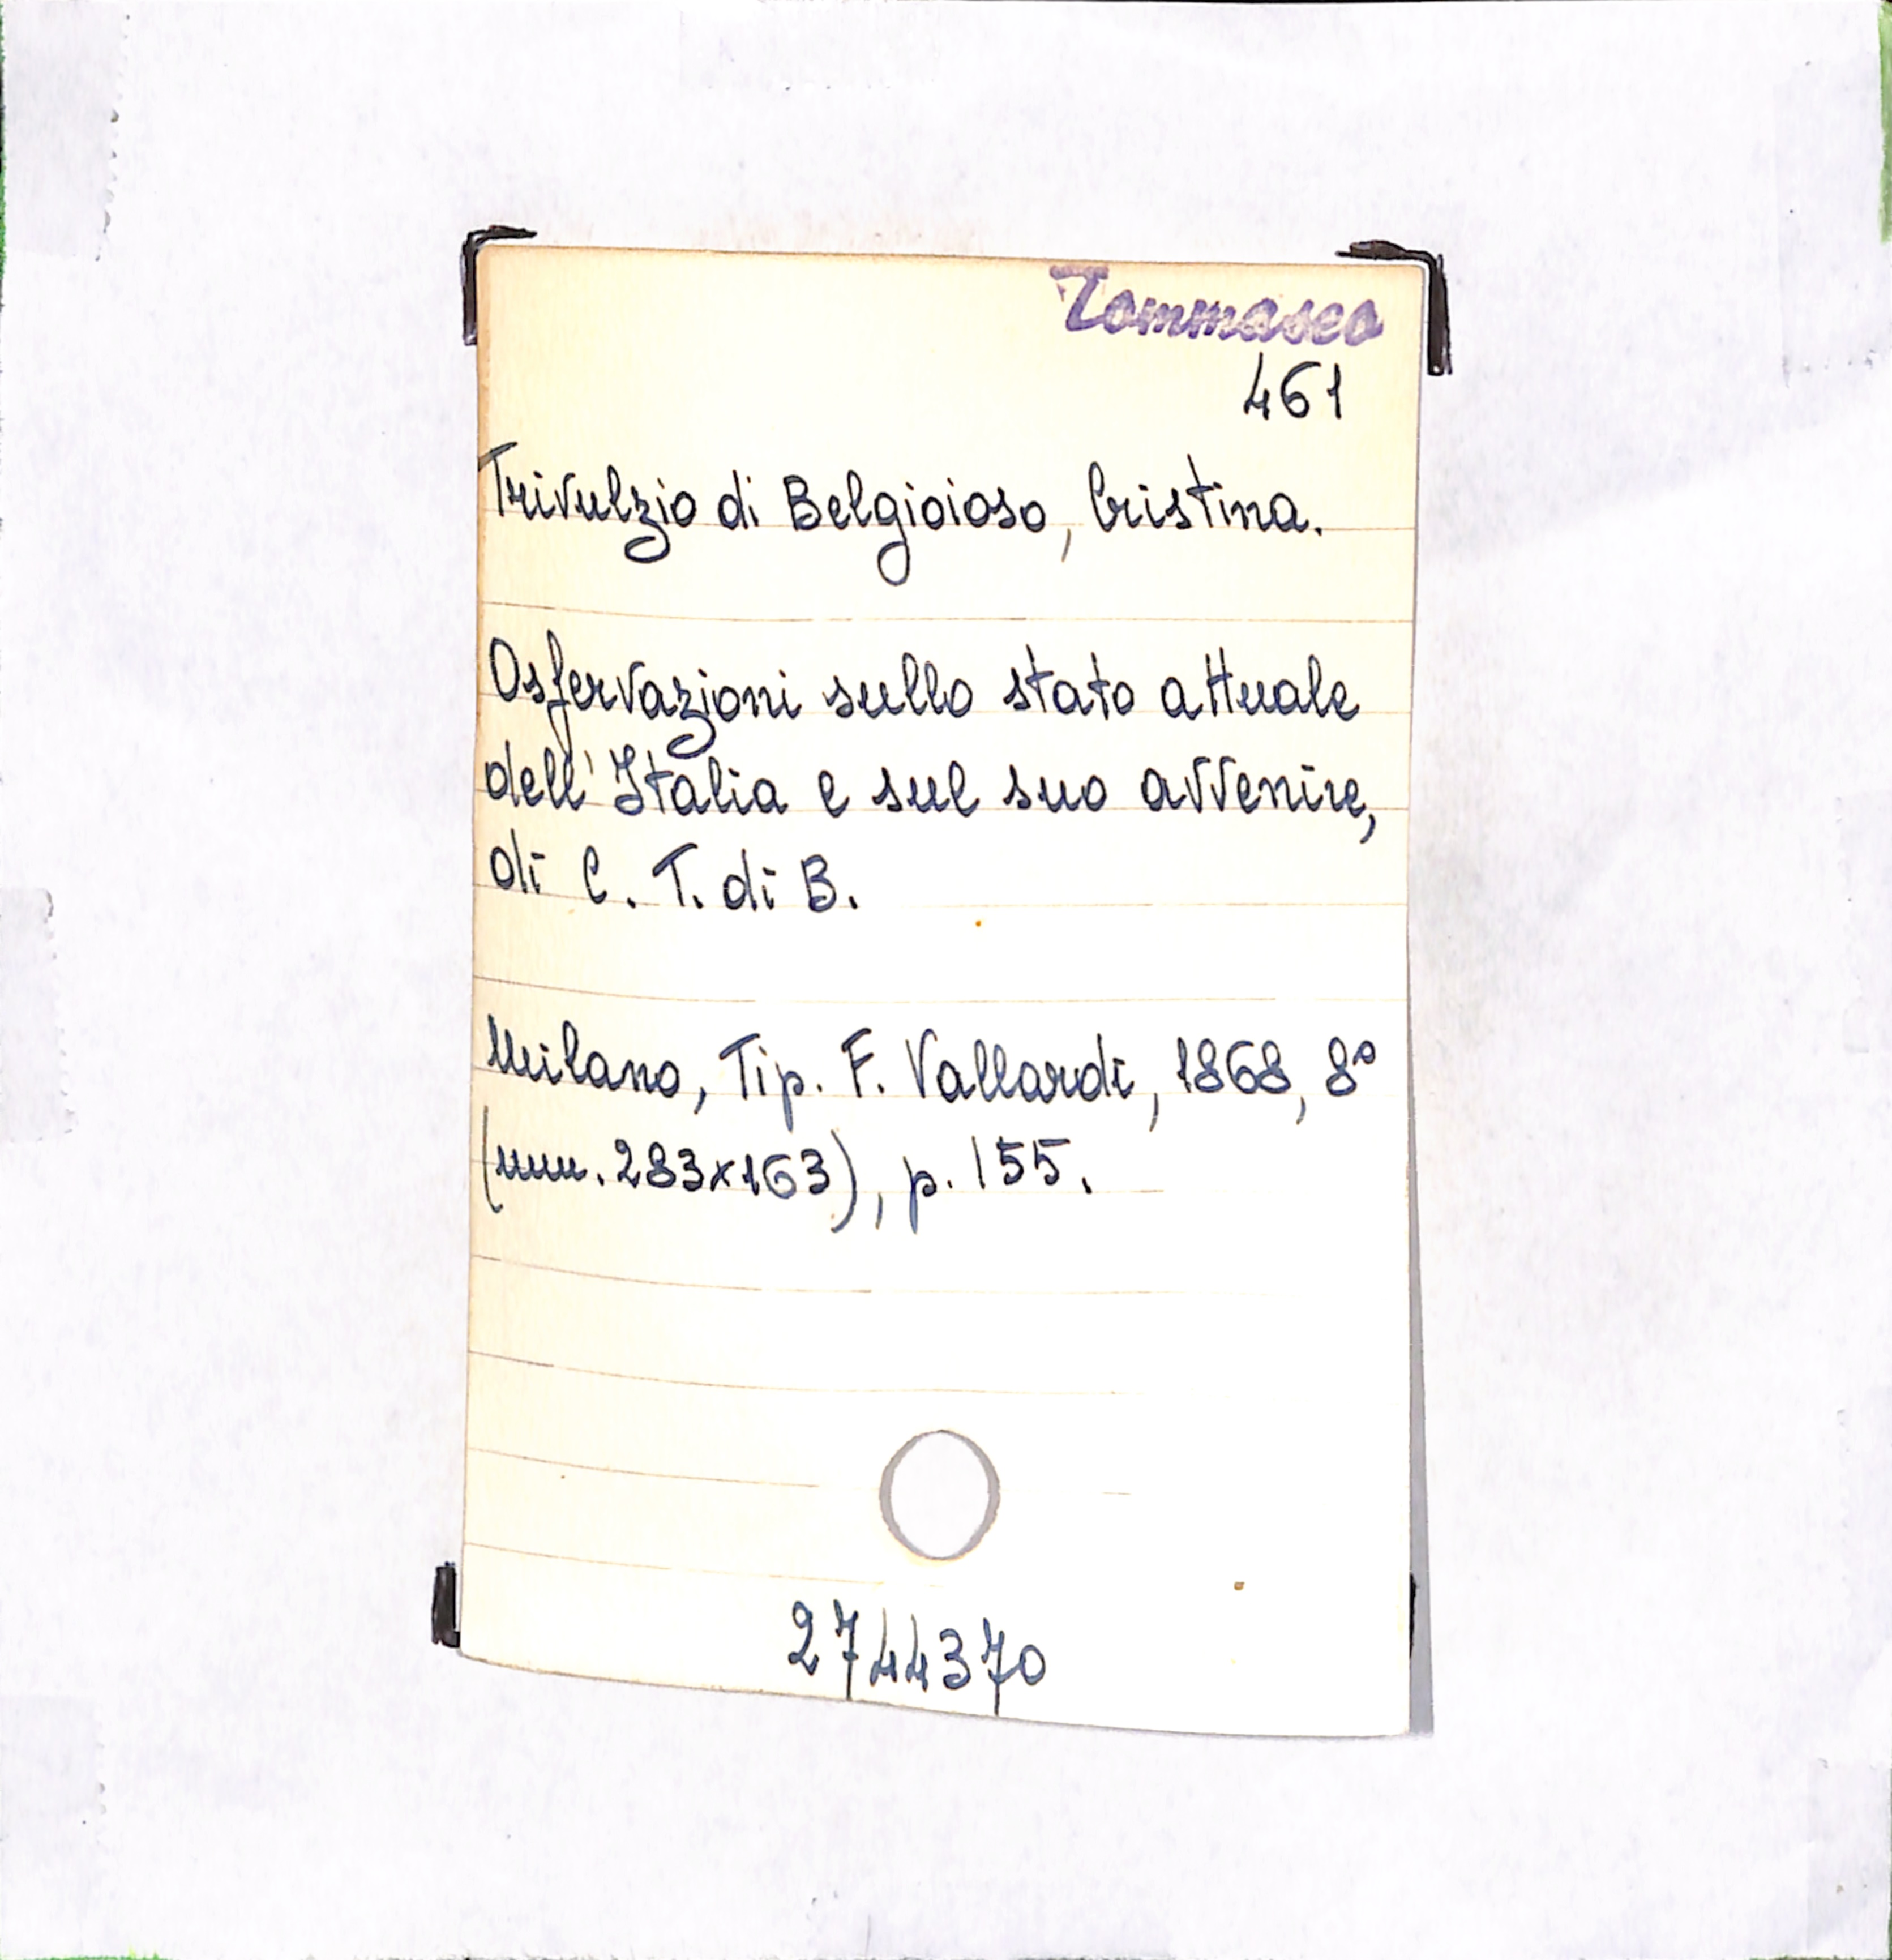 Tommaseo
461
Trivulzio di Belgioioso, Cristina.
Osſervazioni sullo stato attuale
dell'Italia e sul suo avvenire,
di C. T. di B.
Milano, Tip. F. Vallardi, 1868, 8°
(mm. 283x163), p. 155.
2744370